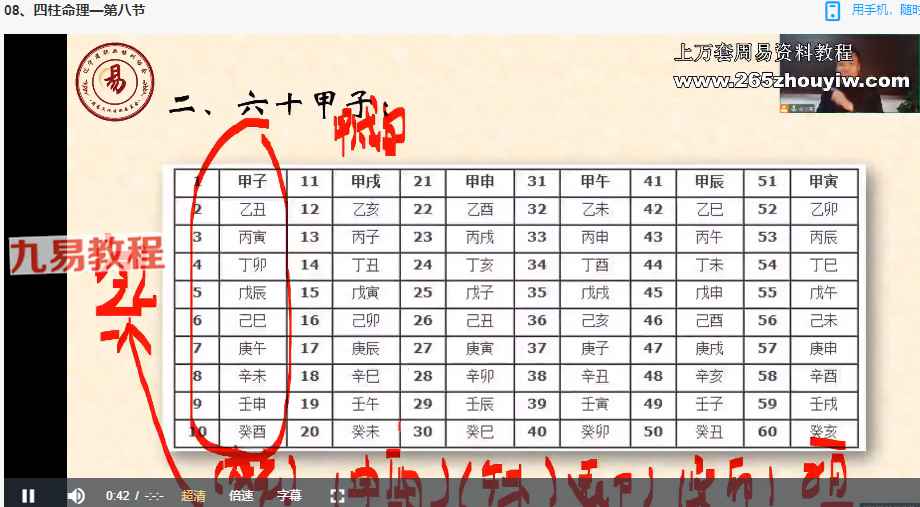 08、四柱命理—第八节
用手机，随时
上万套周易资料教程
www.265zhouyiw.com
易
二、六十甲子：
甲戌
1 甲子 11 甲戌 21 甲申 31 甲午 41 甲辰 51 甲寅
2 乙丑 12 乙亥 22 乙酉 32 乙未 42 乙巳 52 乙卯
3 丙寅 13 丙子 23 丙戌 33 丙申 43 丙午 53 丙辰
九易教程
4 丁卯 14 丁丑 24 丁亥 34 丁酉 44 丁未 54 丁巳
5 戊辰 15 戊寅 25 戊子 35 戊戌 45 戊申 55 戊午
6 己巳 16 己卯 26 己丑 36 己亥 46 己酉 56 己未
7 庚午 17 庚辰 27 庚寅 37 庚子 47 庚戌 57 庚申
8 辛未 18 辛巳 28 辛卯 38 辛丑 48 辛亥 58 辛酉
9 壬申 19 壬午 29 壬辰 39 壬寅 49 壬子 59 壬戌
10 癸酉 20 癸未 30 癸巳 40 癸卯 50 癸丑 60 癸亥
0:42 / -:-:- 超清 倍速 字幕